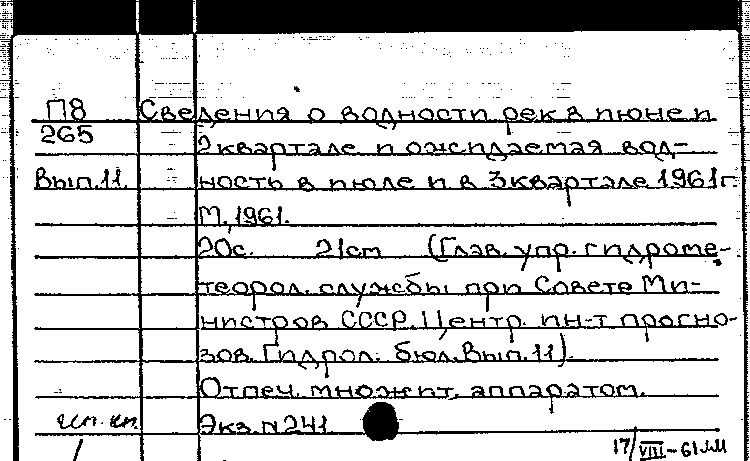 П8 Сведения о водности рек в июне и
265
2 квартале и ожидаемая вод-
Вып.11. ность в июле и в 3 квартале 1961г.
М.,1961.
20с. 21см (Глав. упр. гидроме-
теорол. службы при Совете Ми-
нистров СССР. Центр. ин-т прогно-
зов. Гидрол. бюл. Вып.11).
Отпеч. множит. аппаратом.
Экз. №241
17/VIII-61